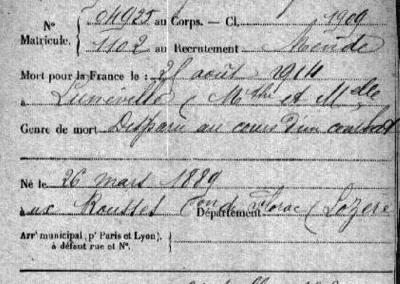 N° 04925 au Corps. — Cl. 1909
Matricule. 1102 au Recrutement Mende
Mort pour la France le : 25 août 1914
à Lunéville (Mthe et Mlle
Genre de mort Disparu au cours d'un combat
Né le 26 mars 1889
aux Rousses Con de Florac (Lozère
Département
Arrt municipal (pr Paris et Lyon),
à défaut rue et N°.